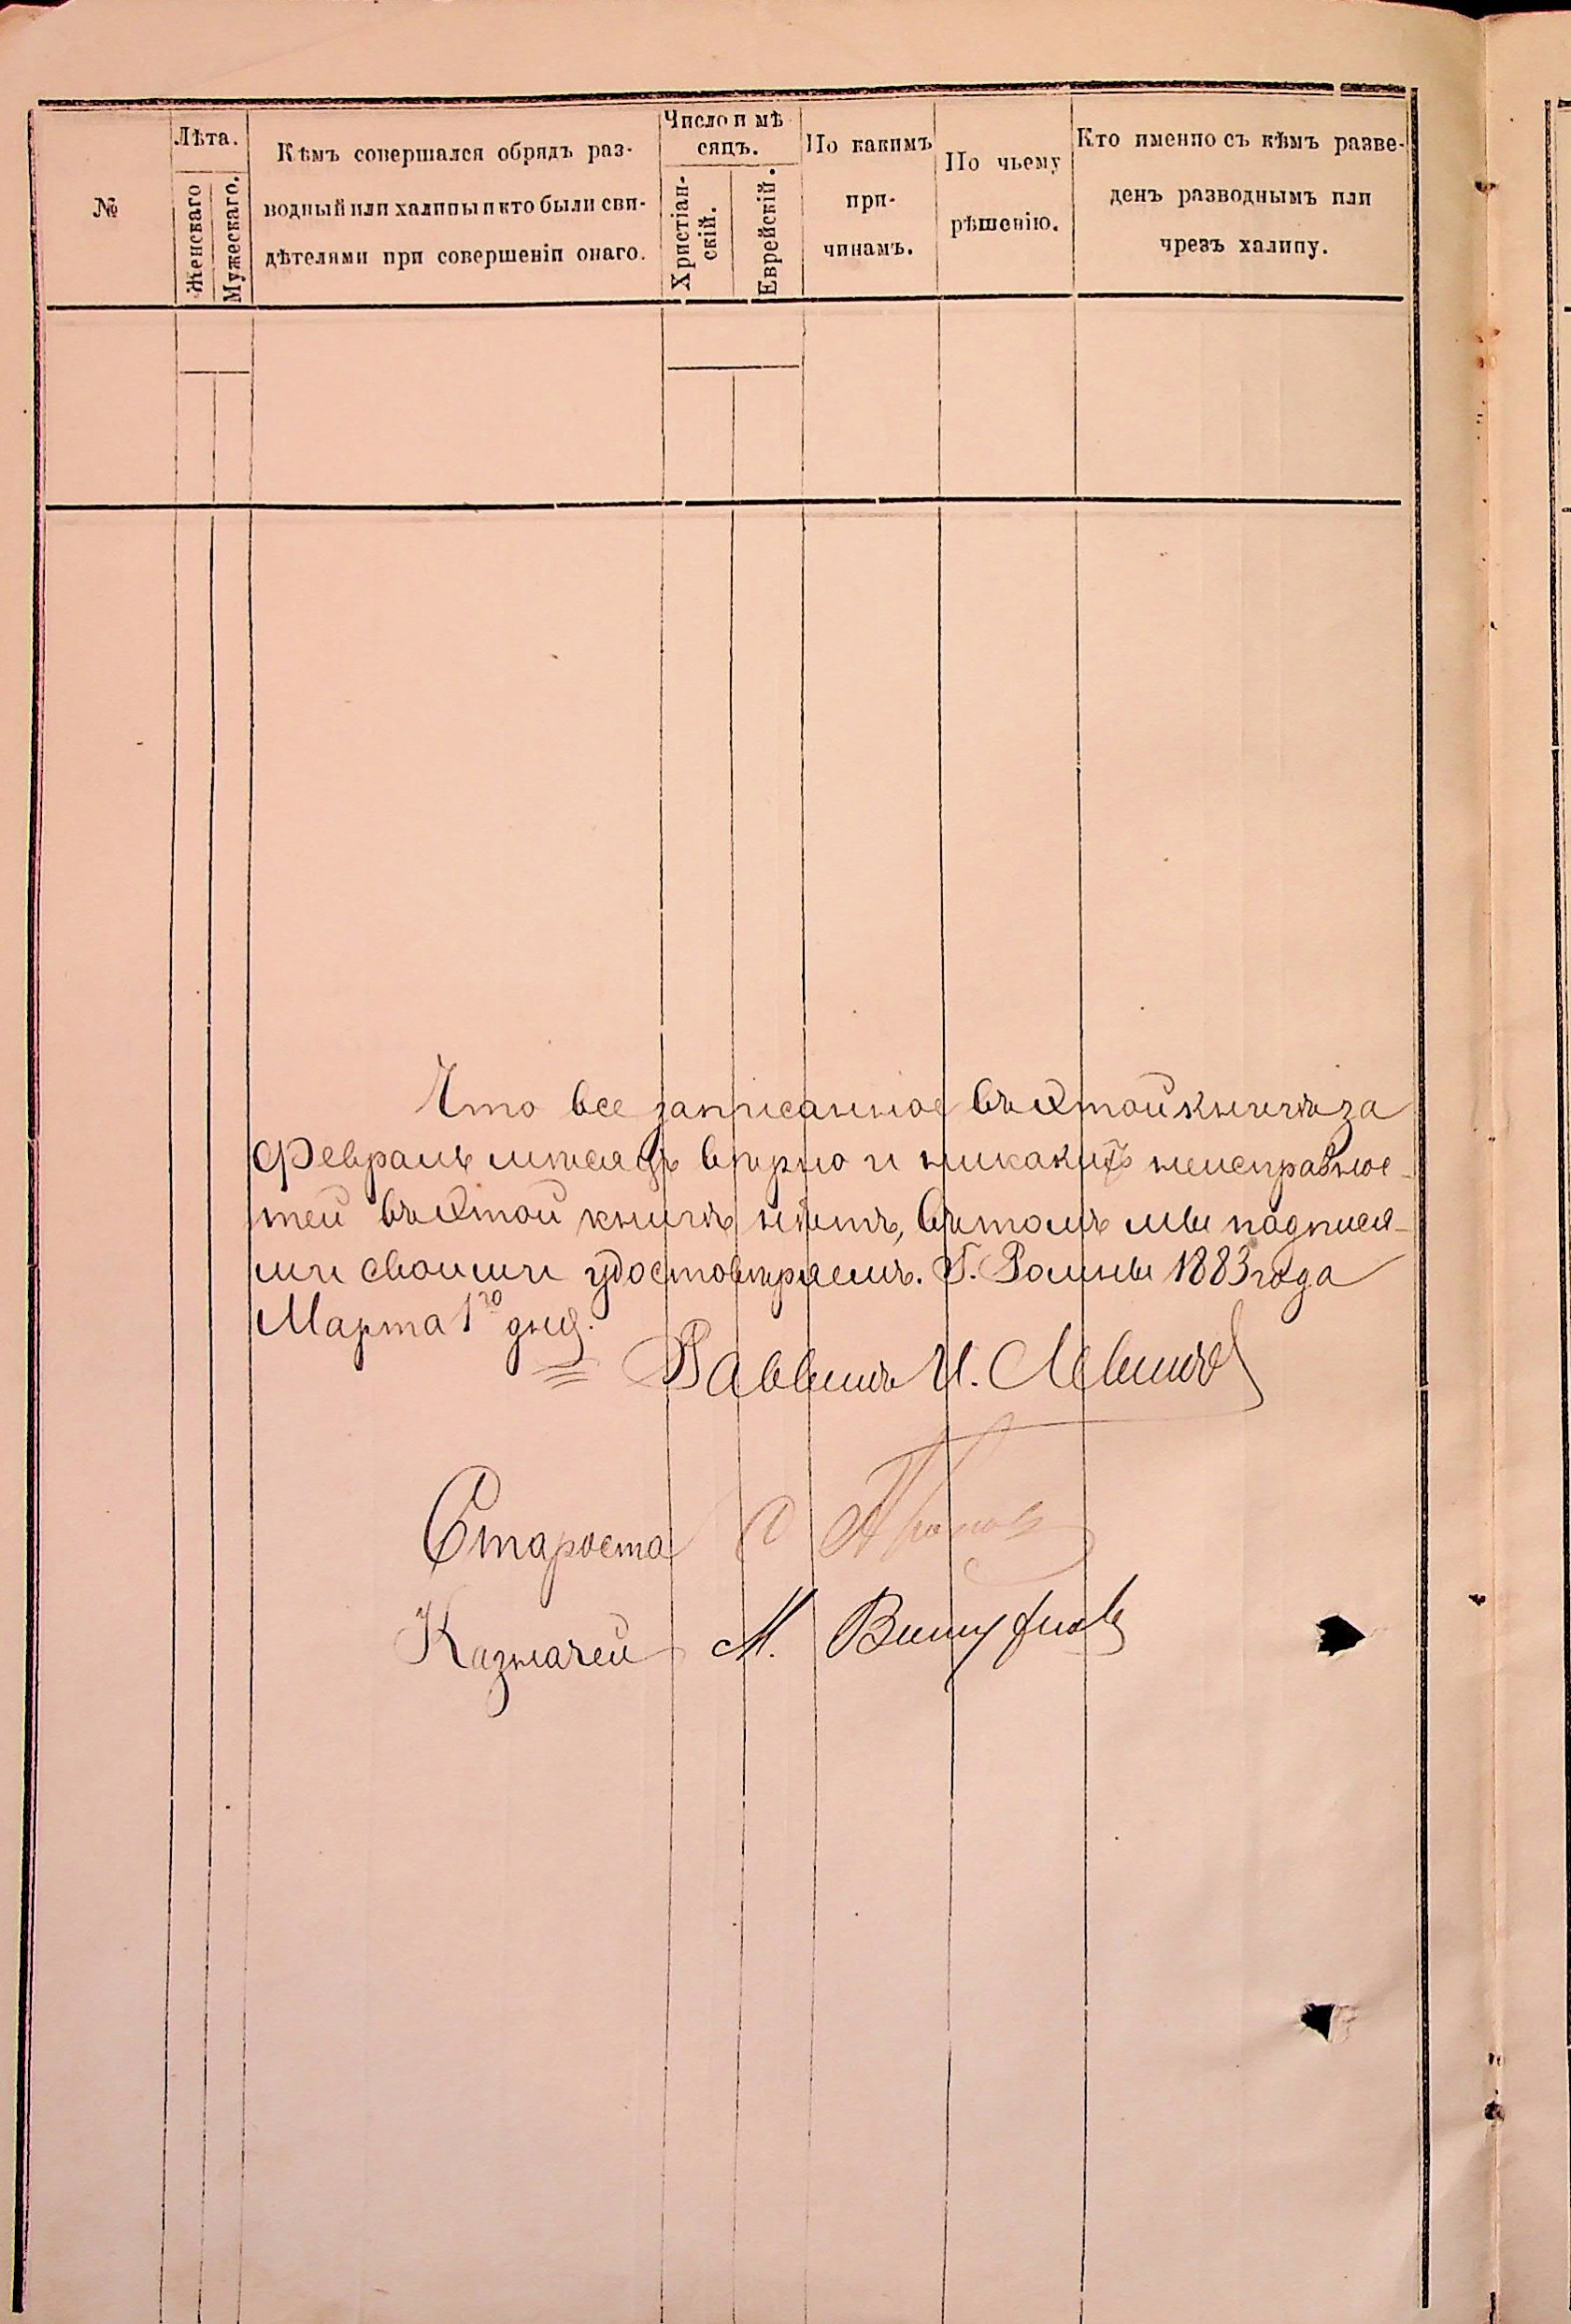 №
Лѣта.
Женскаго
Мужескаго.
Кѣмъ совершался обрядъ раз-
водный или халицы и кто были сви-
дѣтелями при совершеніи онаго.
Число и мѣ
сяцъ.
Христіан-
скій.
Еврейскій.
По какимъ
при-
чинамъ.
По чьему
рѣшенію.
Кто именно съ кѣмъ разве-
денъ разводнымъ или
чрезъ халицу.
Что все записанное въ этой книгѣ за
Февраль мѣсяцъ вѣрно и никакихъ неисправнос-
тей въ этой книгѣ нѣтъ, въ томъ мы подпися-
ми своими удостовѣряемъ. Г. Ромны 1883 года
Марта 1го дня.
Раввинъ И. Левинъ
Староста
Казначей М.